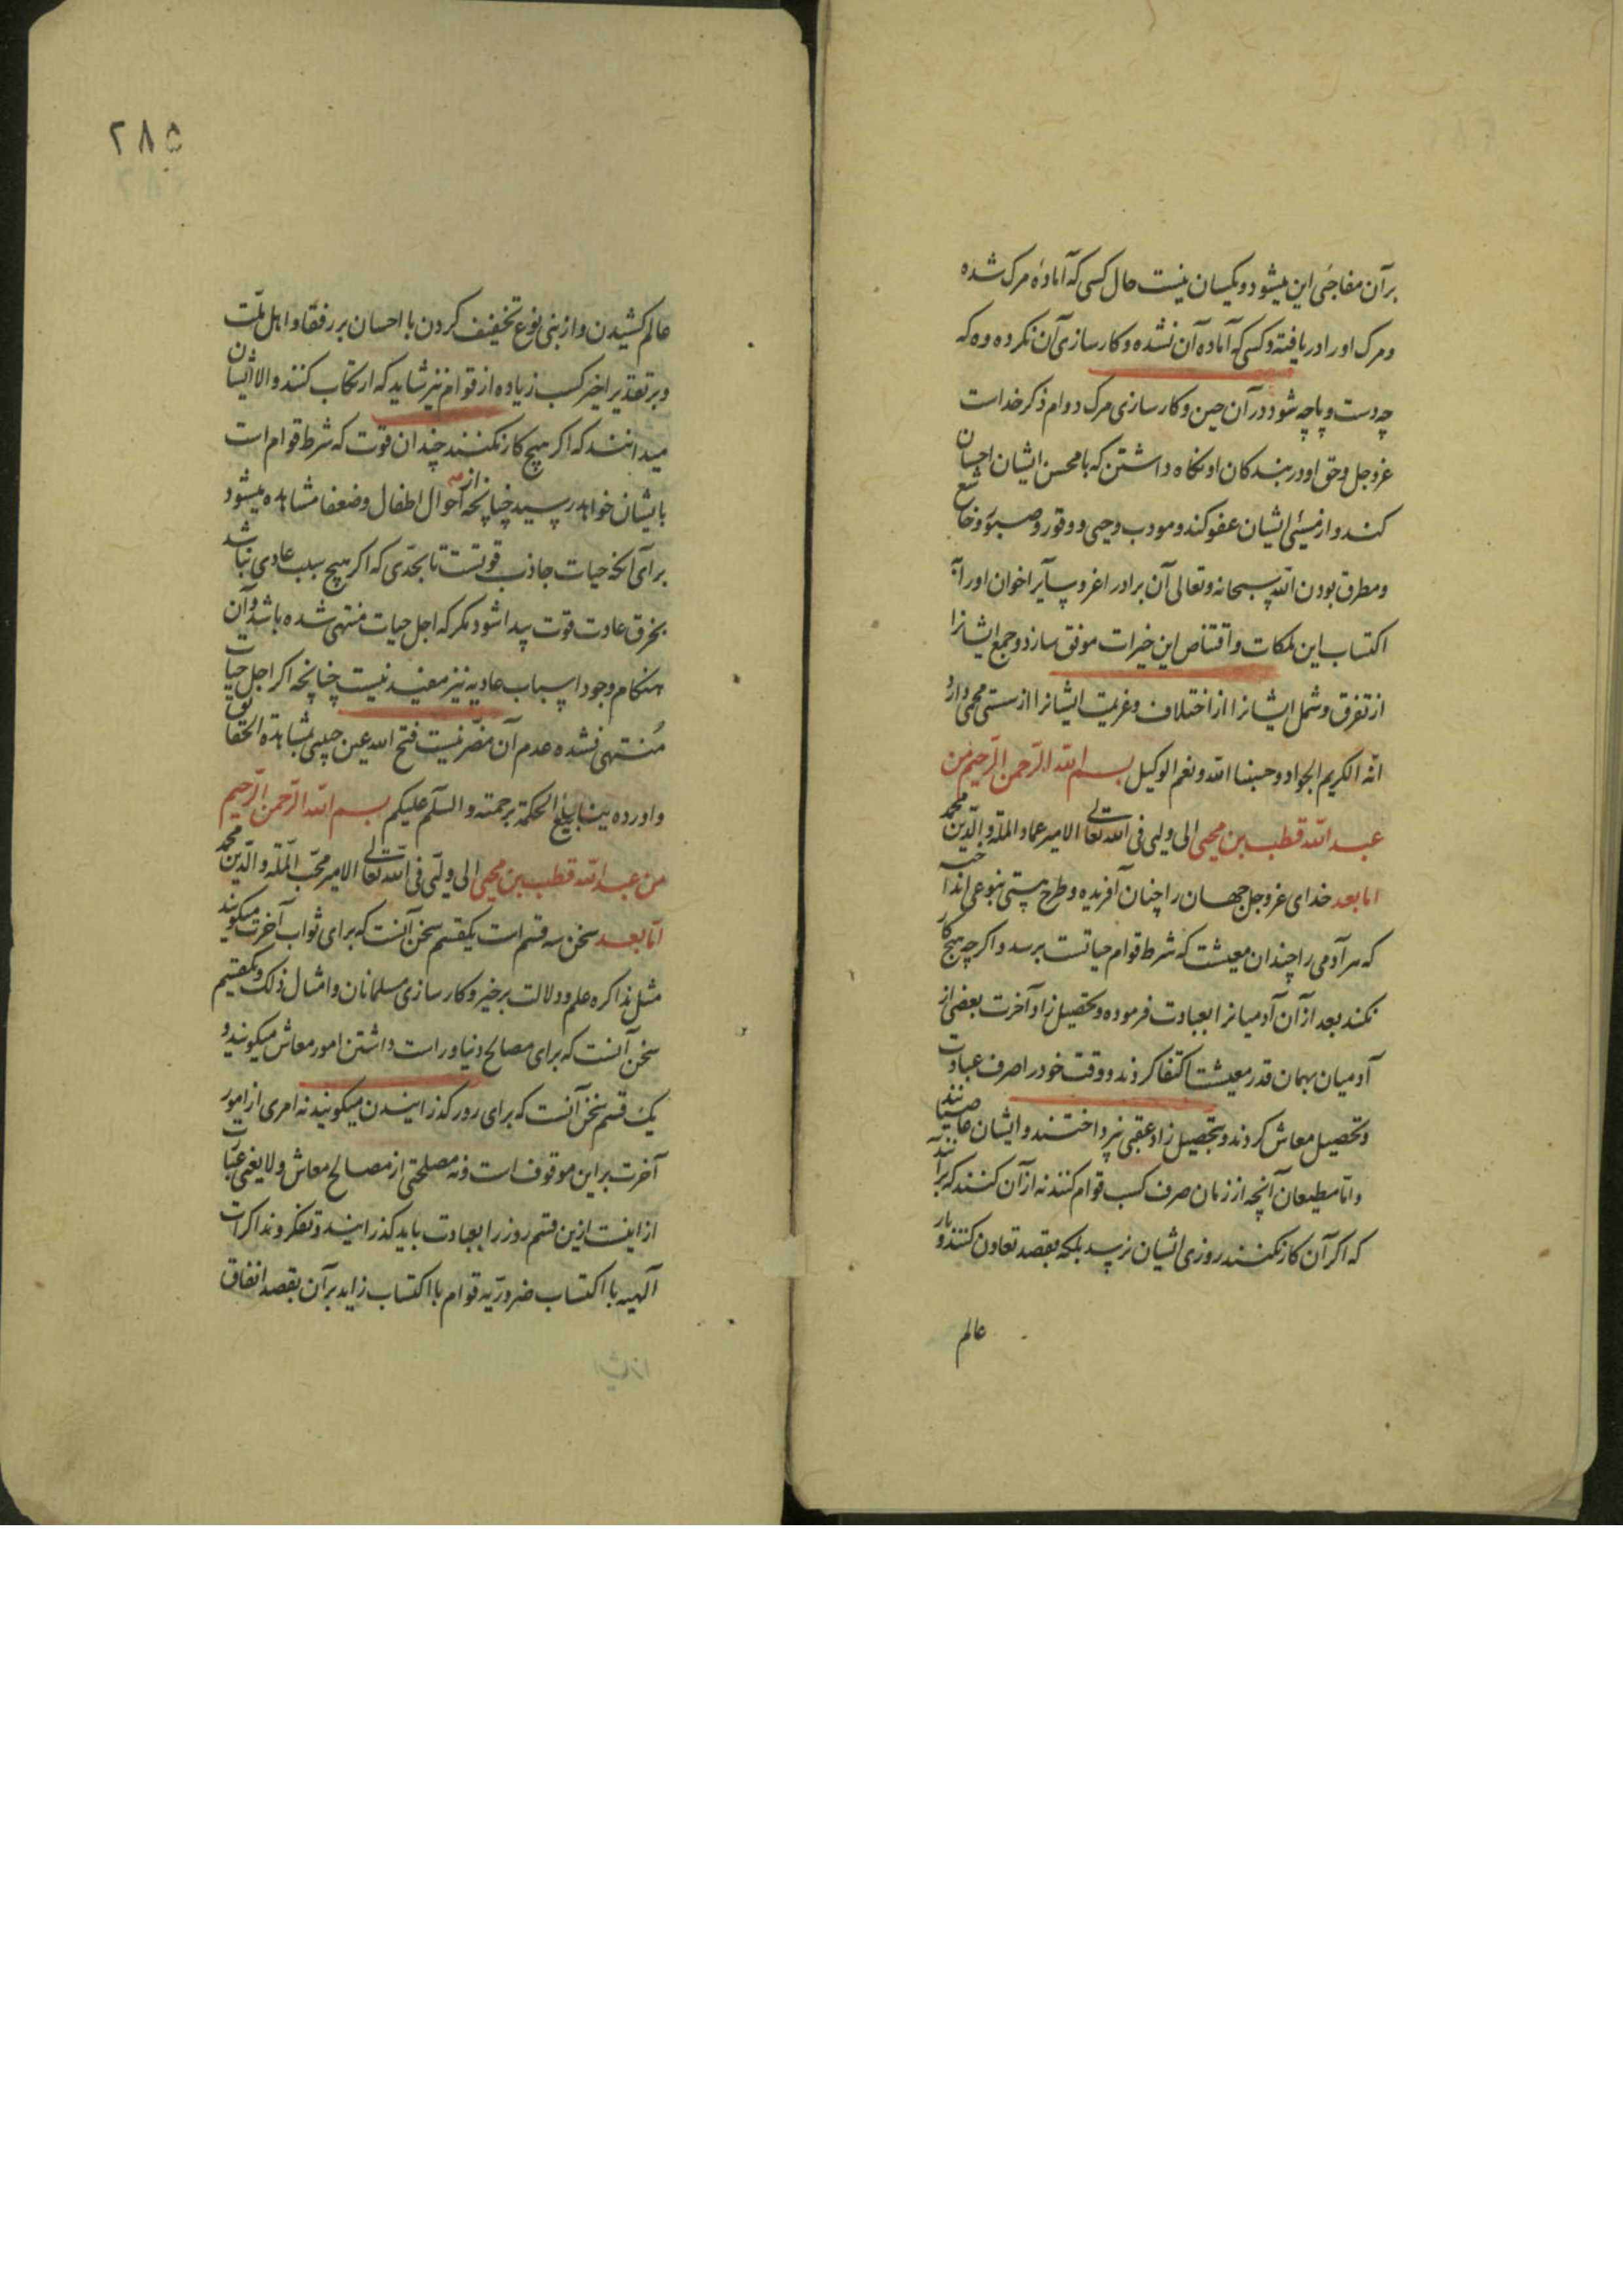 بر آن مفاجئ این میشود و یکسان نیست حال کسی که آمادهٔ مرک شده
و مرک او را دریافته و کسی که آماده آن نشده و کارسازی آن نکرده وه که
چه دست و پاچه شود در آن حین و کارسازی مرک دوام ذکر خداست
عز و جل و حق او در بندکان او نکاه داشتن که با محسن ایشان احسان
کند و از مسئ ایشان عفو کند و مودب و حیی و وقور و صبور و خاشع
و مطرق بودن الله سبحانه و تعالی آن برادر اغر و سایر اخوان او را به
اکتساب این ملکات و اقتناص این خیرات موفق سازد و جمع ایشانرا
از تفرق و شمل ایشانرا از اختلاف و عزیمت ایشانرا از سستی محمی داراد
انه الکریم الجواد و حسبنا الله و نعم الوکیل بسم الله الرحمن الرحیم من
عبد الله قطب بن محیی الی ولیی فی الله تعالی الامیر عماد المله و الدین محمد
اما بعد خدای عز و جل جهان را چنان آفریده و طرح هستی بنوعی انداخته
که هر آدمی را چندان معیشت که شرط قوام حیاتست برسد و اکر چه هیچ کار
نکند بعد از آن آدمیانرا بعبادت فرموده و تحصیل زاد آخرت بعضی از
آدمیان بهمان قدر معیشت اکتفا کردند و وقت خود را صرف عبادت
و تحصیل معاش کردند و بتحصیل زاد عقبی نپرداختند و ایشان عاصیانند
و اما مطیعان آنچه از زمان صرف کسب قوام کنند نه از آن کنند که برآنند
که اکر آن کار نکنند روزی ایشان نرسد بلکه بقصد تعاون کنند و بار
عالم
۲۸۵
عالم کشیدن و از بنی نوع تخفیف کردن با احسان بر رفقا و اهل ملت
و بر تقدیر اخیر کسب زیاده از قوام نیز شاید که ارتکاب کنند و الا ایشان
میدانند که اکر هیچ کار نکنند چندان قوت که شرط قوام است
بایشان خواهد رسید چنانچه از احوال اطفال و ضعفا مشاهده میشود
برای آنکه حیات جاذب قوتست تا بحدی که اکر هیچ سبب عادی نباشد
بخرق عادت قوت پیدا شود مکر که اجل حیات منتهی شده باشد و آن
هنکام وجود اسباب عادیه نیز مفید نیست چنانچه اکر اجل حیات
منتهی نشده عدم آن مضر نیست فتح الله عین حبیبی بمشاهدة الحقائق
و اورده ینابیع الحکمة برحمته و السلام علیکم بسم الله الرحمن الرحیم
من عبد الله قطب بن محیی الی ولیی فی الله تعالی الامیر محب الملة و الدین محمد
اما بعد سخن سه قسم است یکقسم سخن آنست که برای ثواب آخرت میکویند
مثل مذاکره علم و دلالت بر خیر و کارسازی مسلمانان و امثال ذلک و یکقسم
سخن آنست که برای مصالح دنیا و راست داشتن امور معاش میکویند و
یک قسم سخن آنست که برای روز کذرانیدن میکویند نه امری از امور
آخرت بر این موقوف است و نه مصلحتی از مصالح معاش و لا یعنی عبارت
از اینست ازین قسم روز را بعبادت باید کذرانید و تفکر و مذاکرات
آلهیه با اکتساب ضروریه قوام با اکتساب زاید بر آن بقصد انفاق